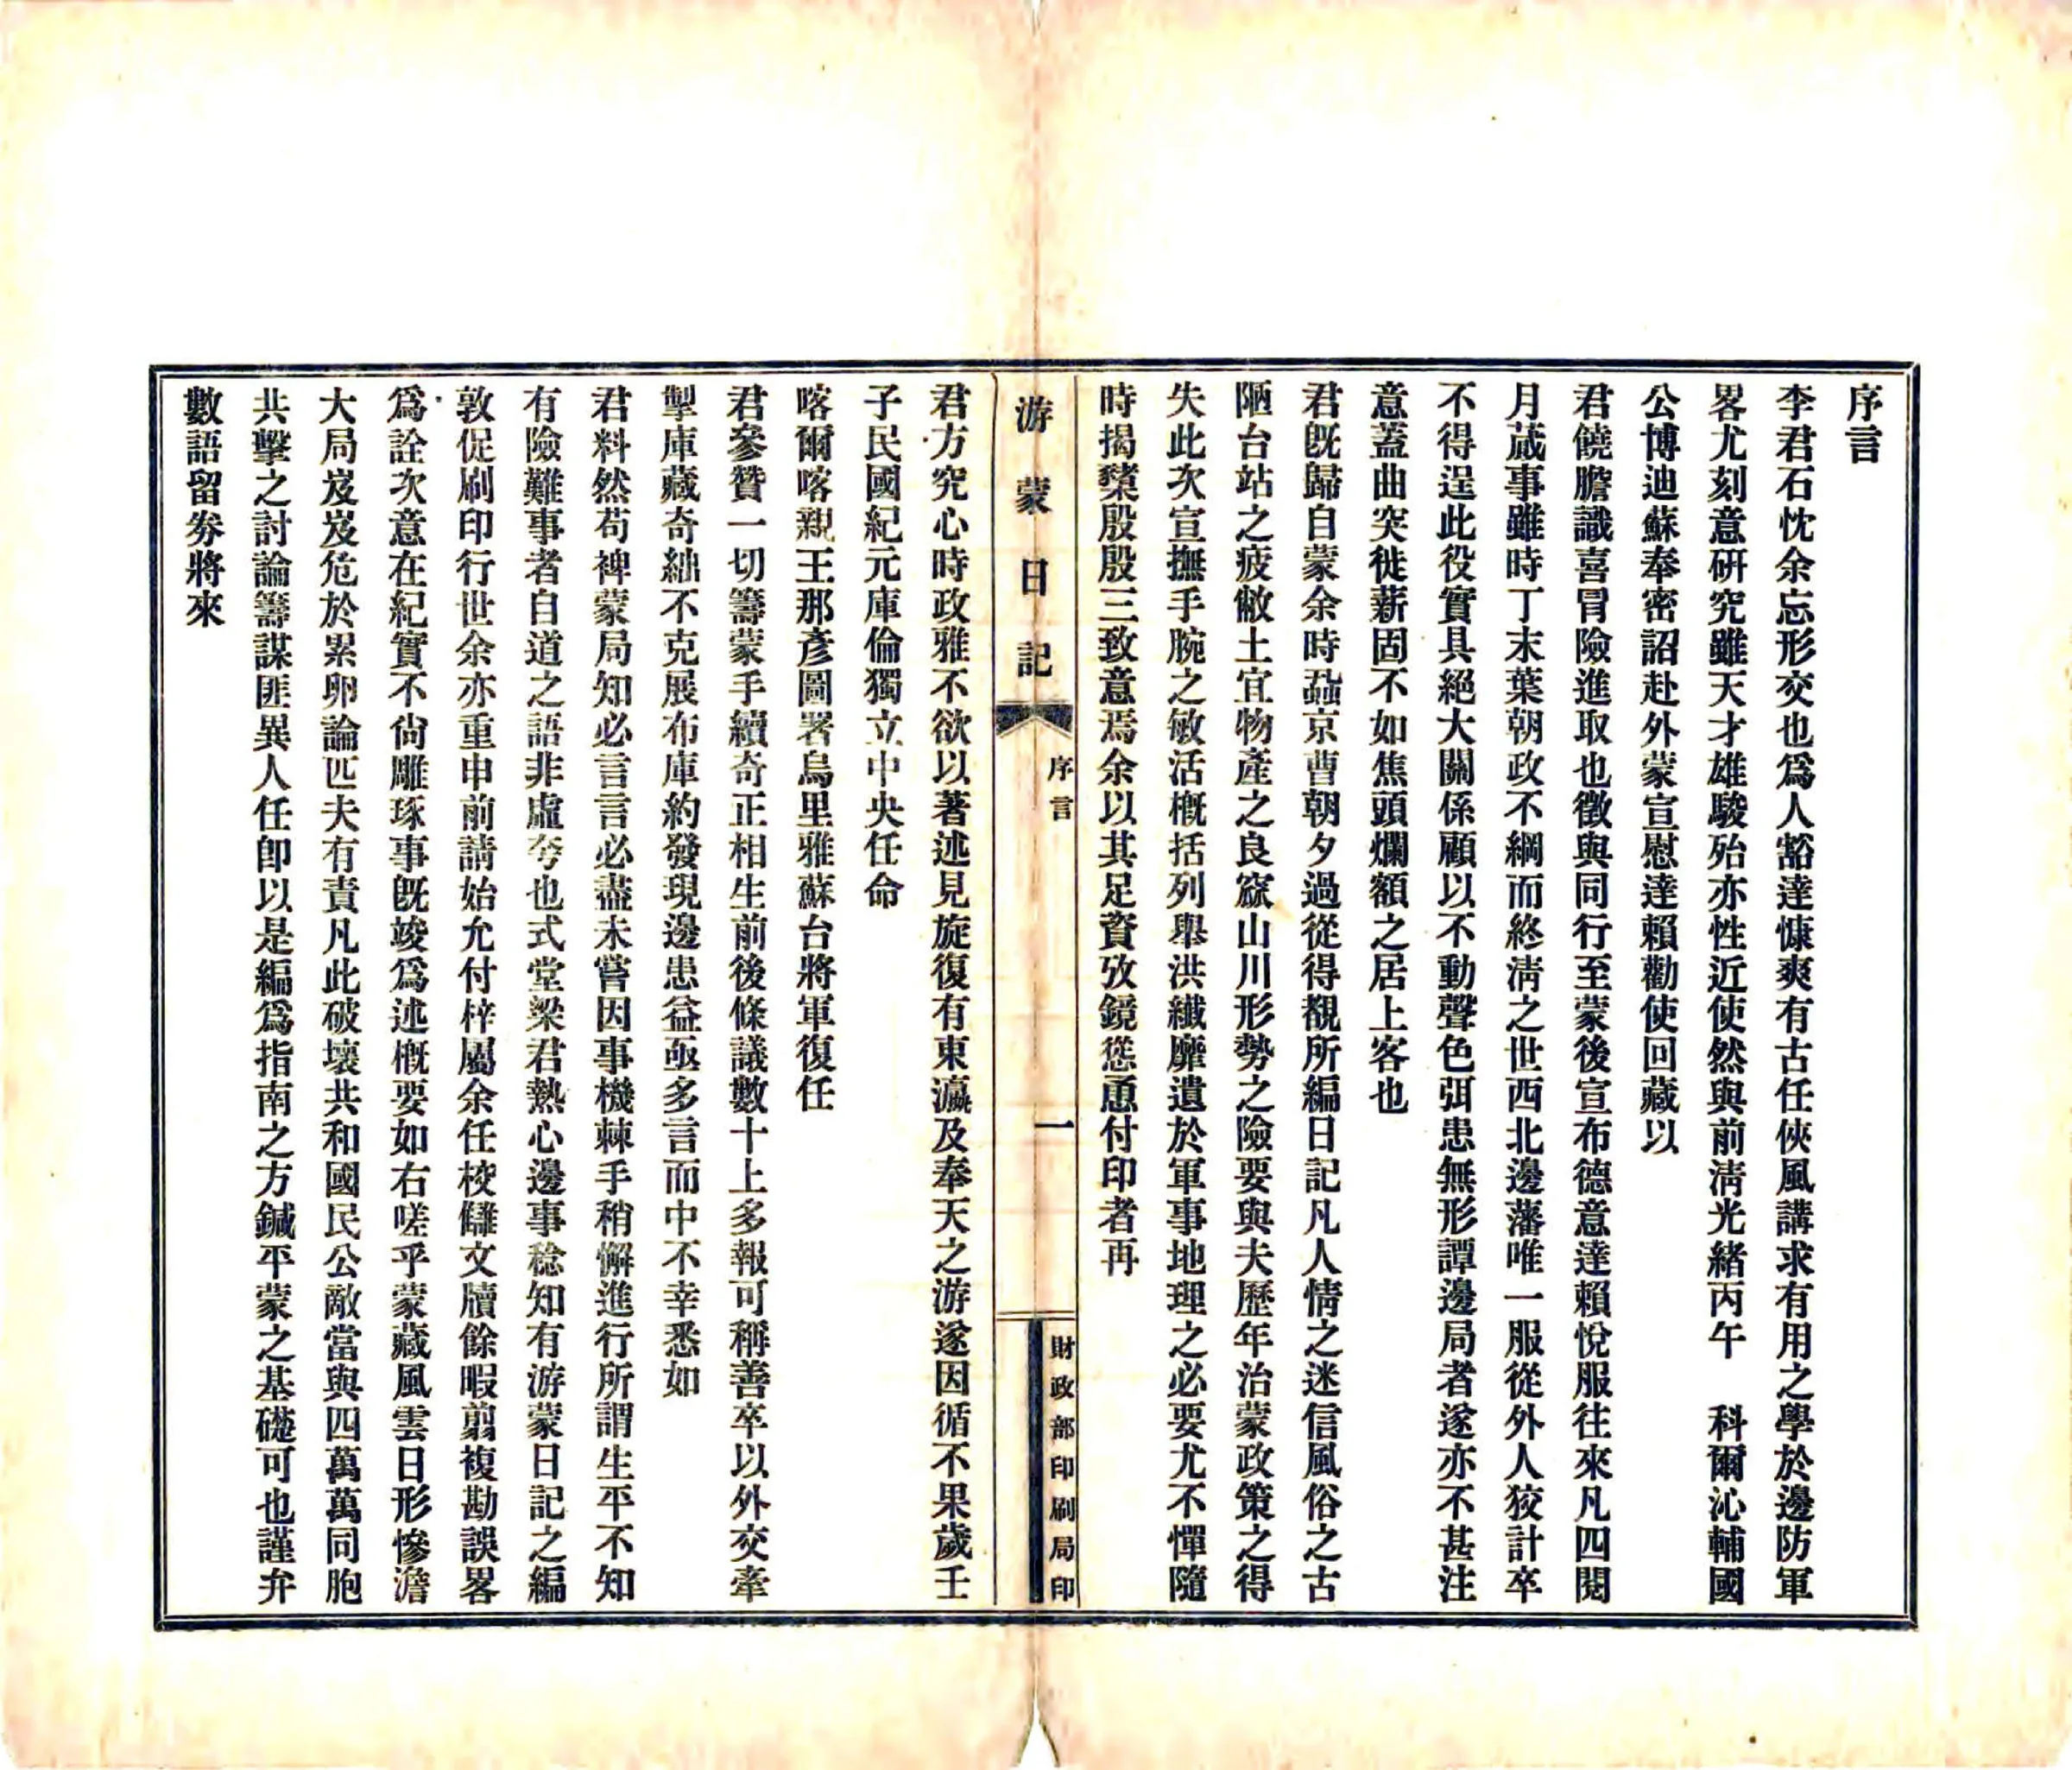 序言
李君石忱余忘形交也爲人豁達慷爽有古任俠風講求有用之學於邊防軍
畧尤刻意硏究雖天才雄駿殆亦性近使然與前淸光緒丙午　科爾沁輔國
公博迪蘇奉密詔赴外蒙宣慰達賴勸使回藏以
君饒膽識喜冒險進取也徵與同行至蒙後宣布德意達賴悅服往來凡四閱
月蕆事雖時丁末葉朝政不綱而終淸之世西北邊藩唯一服從外人狡計卒
不得逞此役實具絕大關係顧以不動聲色弭患無形譚邊局者遂亦不甚注
意蓋曲突徙薪固不如焦頭爛額之居上客也
君旣歸自蒙余時蝨京曹朝夕過從得覩所編日記凡人情之迷信風俗之古
陋台站之疲敝土宜物產之良窳山川形勢之險要與夫歷年治蒙政策之得
失此次宣撫手腕之敏活槪括列舉洪纖靡遺於軍事地理之必要尤不憚隨
時揭櫫殷殷三致意焉余以其足資攷鏡慫恿付印者再
游蒙日記
序言
一
財政部印刷局印
君方究心時政雅不欲以著述見旋復有東瀛及奉天之游遂因循不果歲壬
子民國紀元庫倫獨立中央任命
喀爾喀親王那彥圖署烏里雅蘇台將軍復任
君參贊一切籌蒙手續奇正相生前後條議數十上多報可稱善卒以外交牽
掣庫藏奇絀不克展布庫約發現邊患益亟多言而中不幸悉如
君料然苟裨蒙局知必言言必盡未嘗因事機棘手稍懈進行所謂生平不知
有險難事者自道之語非虛夸也式堂梁君熱心邊事稔知有游蒙日記之編
敦促刷印行世余亦重申前請始允付梓屬余任校讎文牘餘暇翦複勘誤畧
爲詮次意在紀實不尙雕琢事旣竣爲述槪要如右嗟乎蒙藏風雲日形慘澹
大局岌岌危於累卵論匹夫有責凡此破壞共和國民公敵當與四萬萬同胞
共擊之討論籌謀匪異人任卽以是編爲指南之方鍼平蒙之基礎可也謹弁
數語留券將來